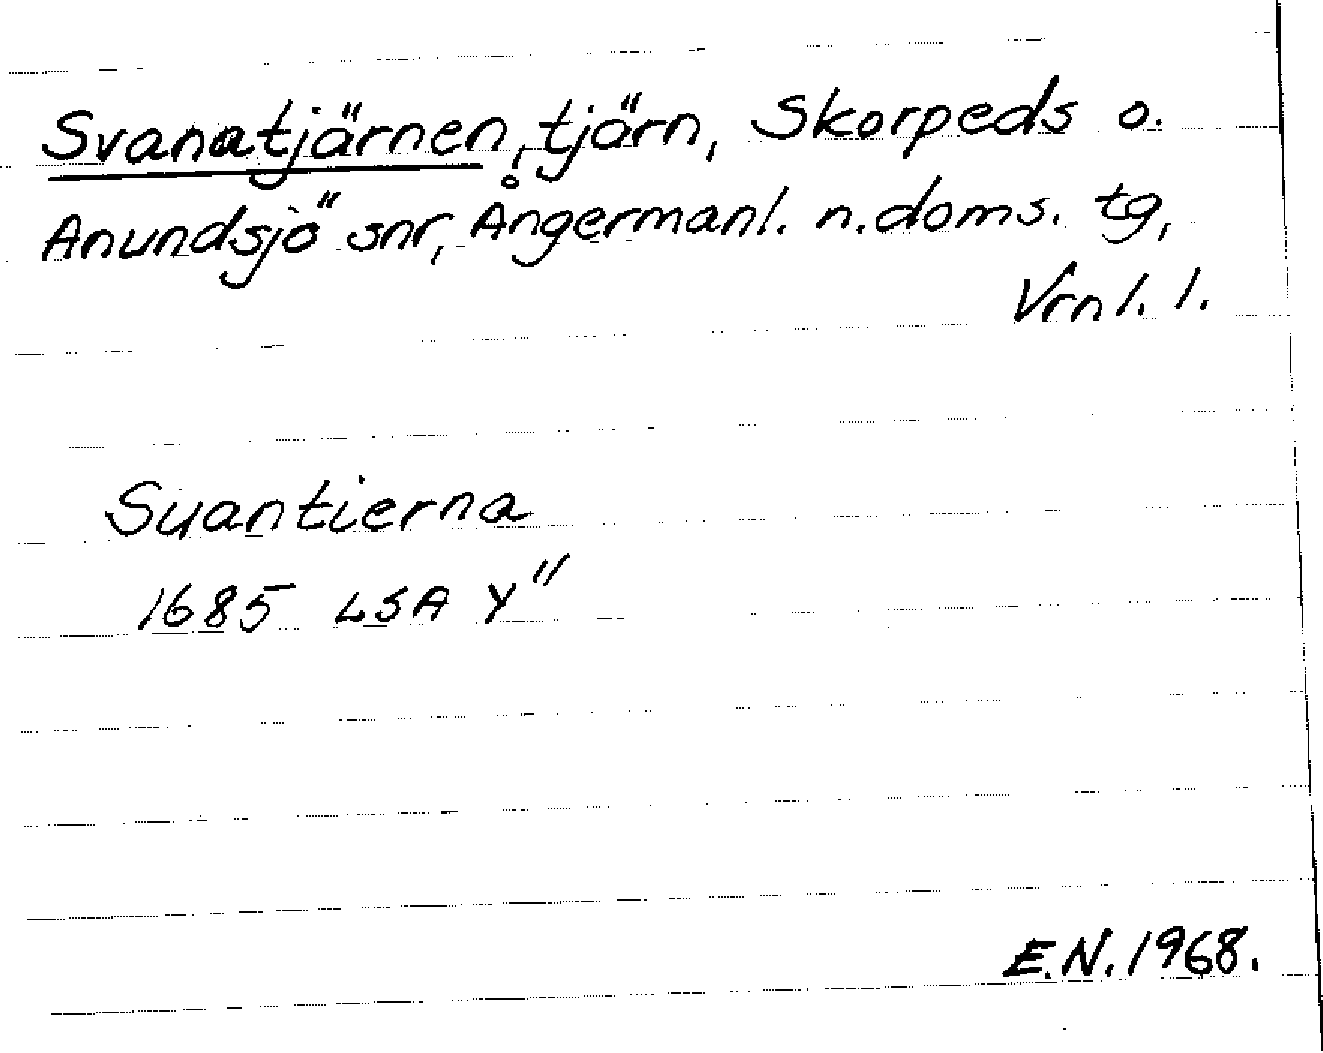 Svanatjärnen, tjärn, Skorpeds o.
Anundsjö snr, Ångermanl. n. doms. tg,
Vrnl. l.
Suantierna
1685 LSA Y"
E.N. 1968.